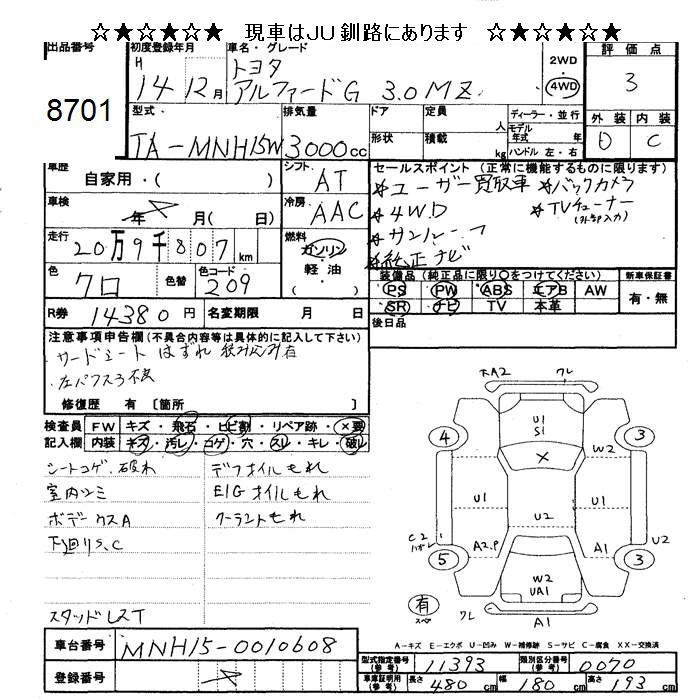 ☆★☆★☆★ 現車はJU釧路にあります ☆★☆★☆★
出品番号
8701
初度登録年月
H 14 12月
車名・グレード
トヨタ
アルファードG 3.0MZ
2WD
4WD
評価点
3
外装 内装
D C
型式
TA-MNH15W
排気量
3000cc
ドア
形状
定員 人
積載 kg
ディーラー・並行
モデル年式 年
ハンドル 左・右
車歴
自家用・( )
シフト
AT
車検
年 月( 日)
冷房
AAC
走行
20万9千807km
燃料
ガソリン
軽油
( )
色
クロ
色替
色コード
209
R券 14380円
名変期限 月 日
セールスポイント (正常に機能するものに限ります)
★ユーザー買取車 ★バックカメラ
★4WD ★TVチューナー
(外部入力)
★サンルーフ
★純正ナビ
装備品 (純正品に限り○をつけてください)
PS PW ABS エアB AW
SR ナビ TV 本革
新車保証書
有・無
後日品
注意事項申告欄 (不具合内容等は具体的に記入して下さい)
サードシート はずれ 積み込み有
左パワスラ不良
修復歴 有 [箇所 ]
検査員 FW キズ・飛石・ヒビ割・リペア跡・×要
記入欄 内装 キズ・汚レ・コゲ・穴・スレ・キレ・破レ
シートコゲ、破れ
デフオイルもれ
室内シミ
E/Gオイルもれ
ボデークスA
クーラントもれ
下回りS、C
スタッドレスT
ホA2 ワレ
U1
S1
4
3
×
W2
U1
U1
U2
C2
A2.P
A1
U2
5
3
W2
UA1
有
スペア
ワレ
A1
A-キズ E-エクボ U-凹み W-補修跡 S-サビ C-腐食 XX-交換済
車台番号 MNH15-0010608
登録番号
型式指定番号(参考) 11393
類別区分番号(参考) 0070
車庫証明用(参考) 長さ 480cm 幅 180cm 高さ 193cm